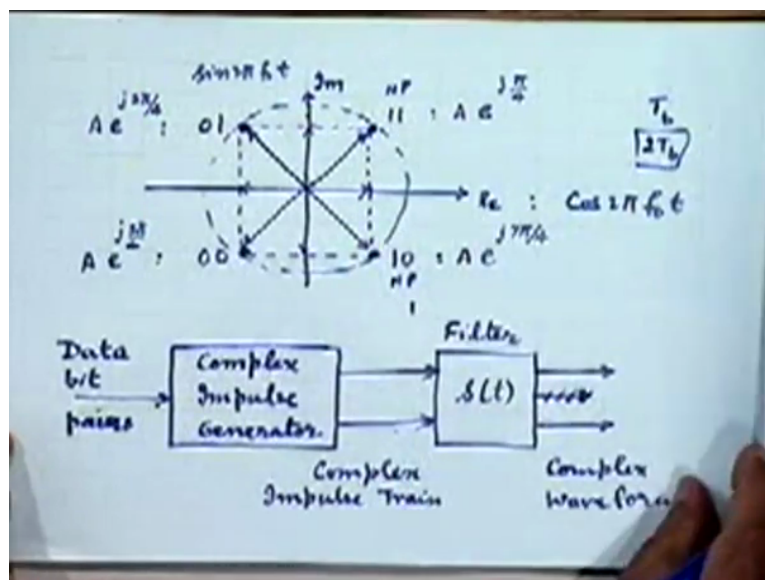 sin 2π f₀ t
Im
NP
A e^{j3π/4} : 01
11 : A e^{jπ/4}
T_b
2T_b
Re : Cos 2π f₀ t
A e : 00
10 : A e^{j7π/4}
NP
1
Data
bit
pairs
Complex
Impulse
Generator
Filter
s(t)
Complex
Impulse Train
Complex
Wave form